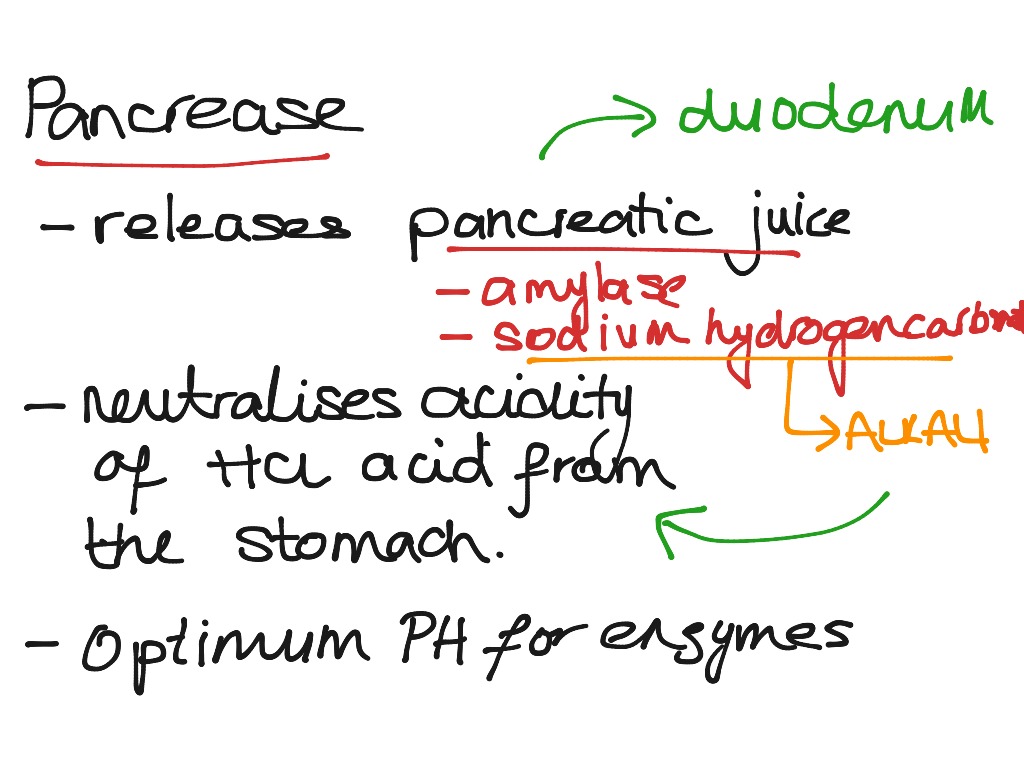 Pancrease
duodenum
- releases pancreatic juice
- amylase
- sodium hydrogencarbonate
- neutralises acidity
ALKALI
of HCL acid from
the stomach.
- Optimum PH for enzymes